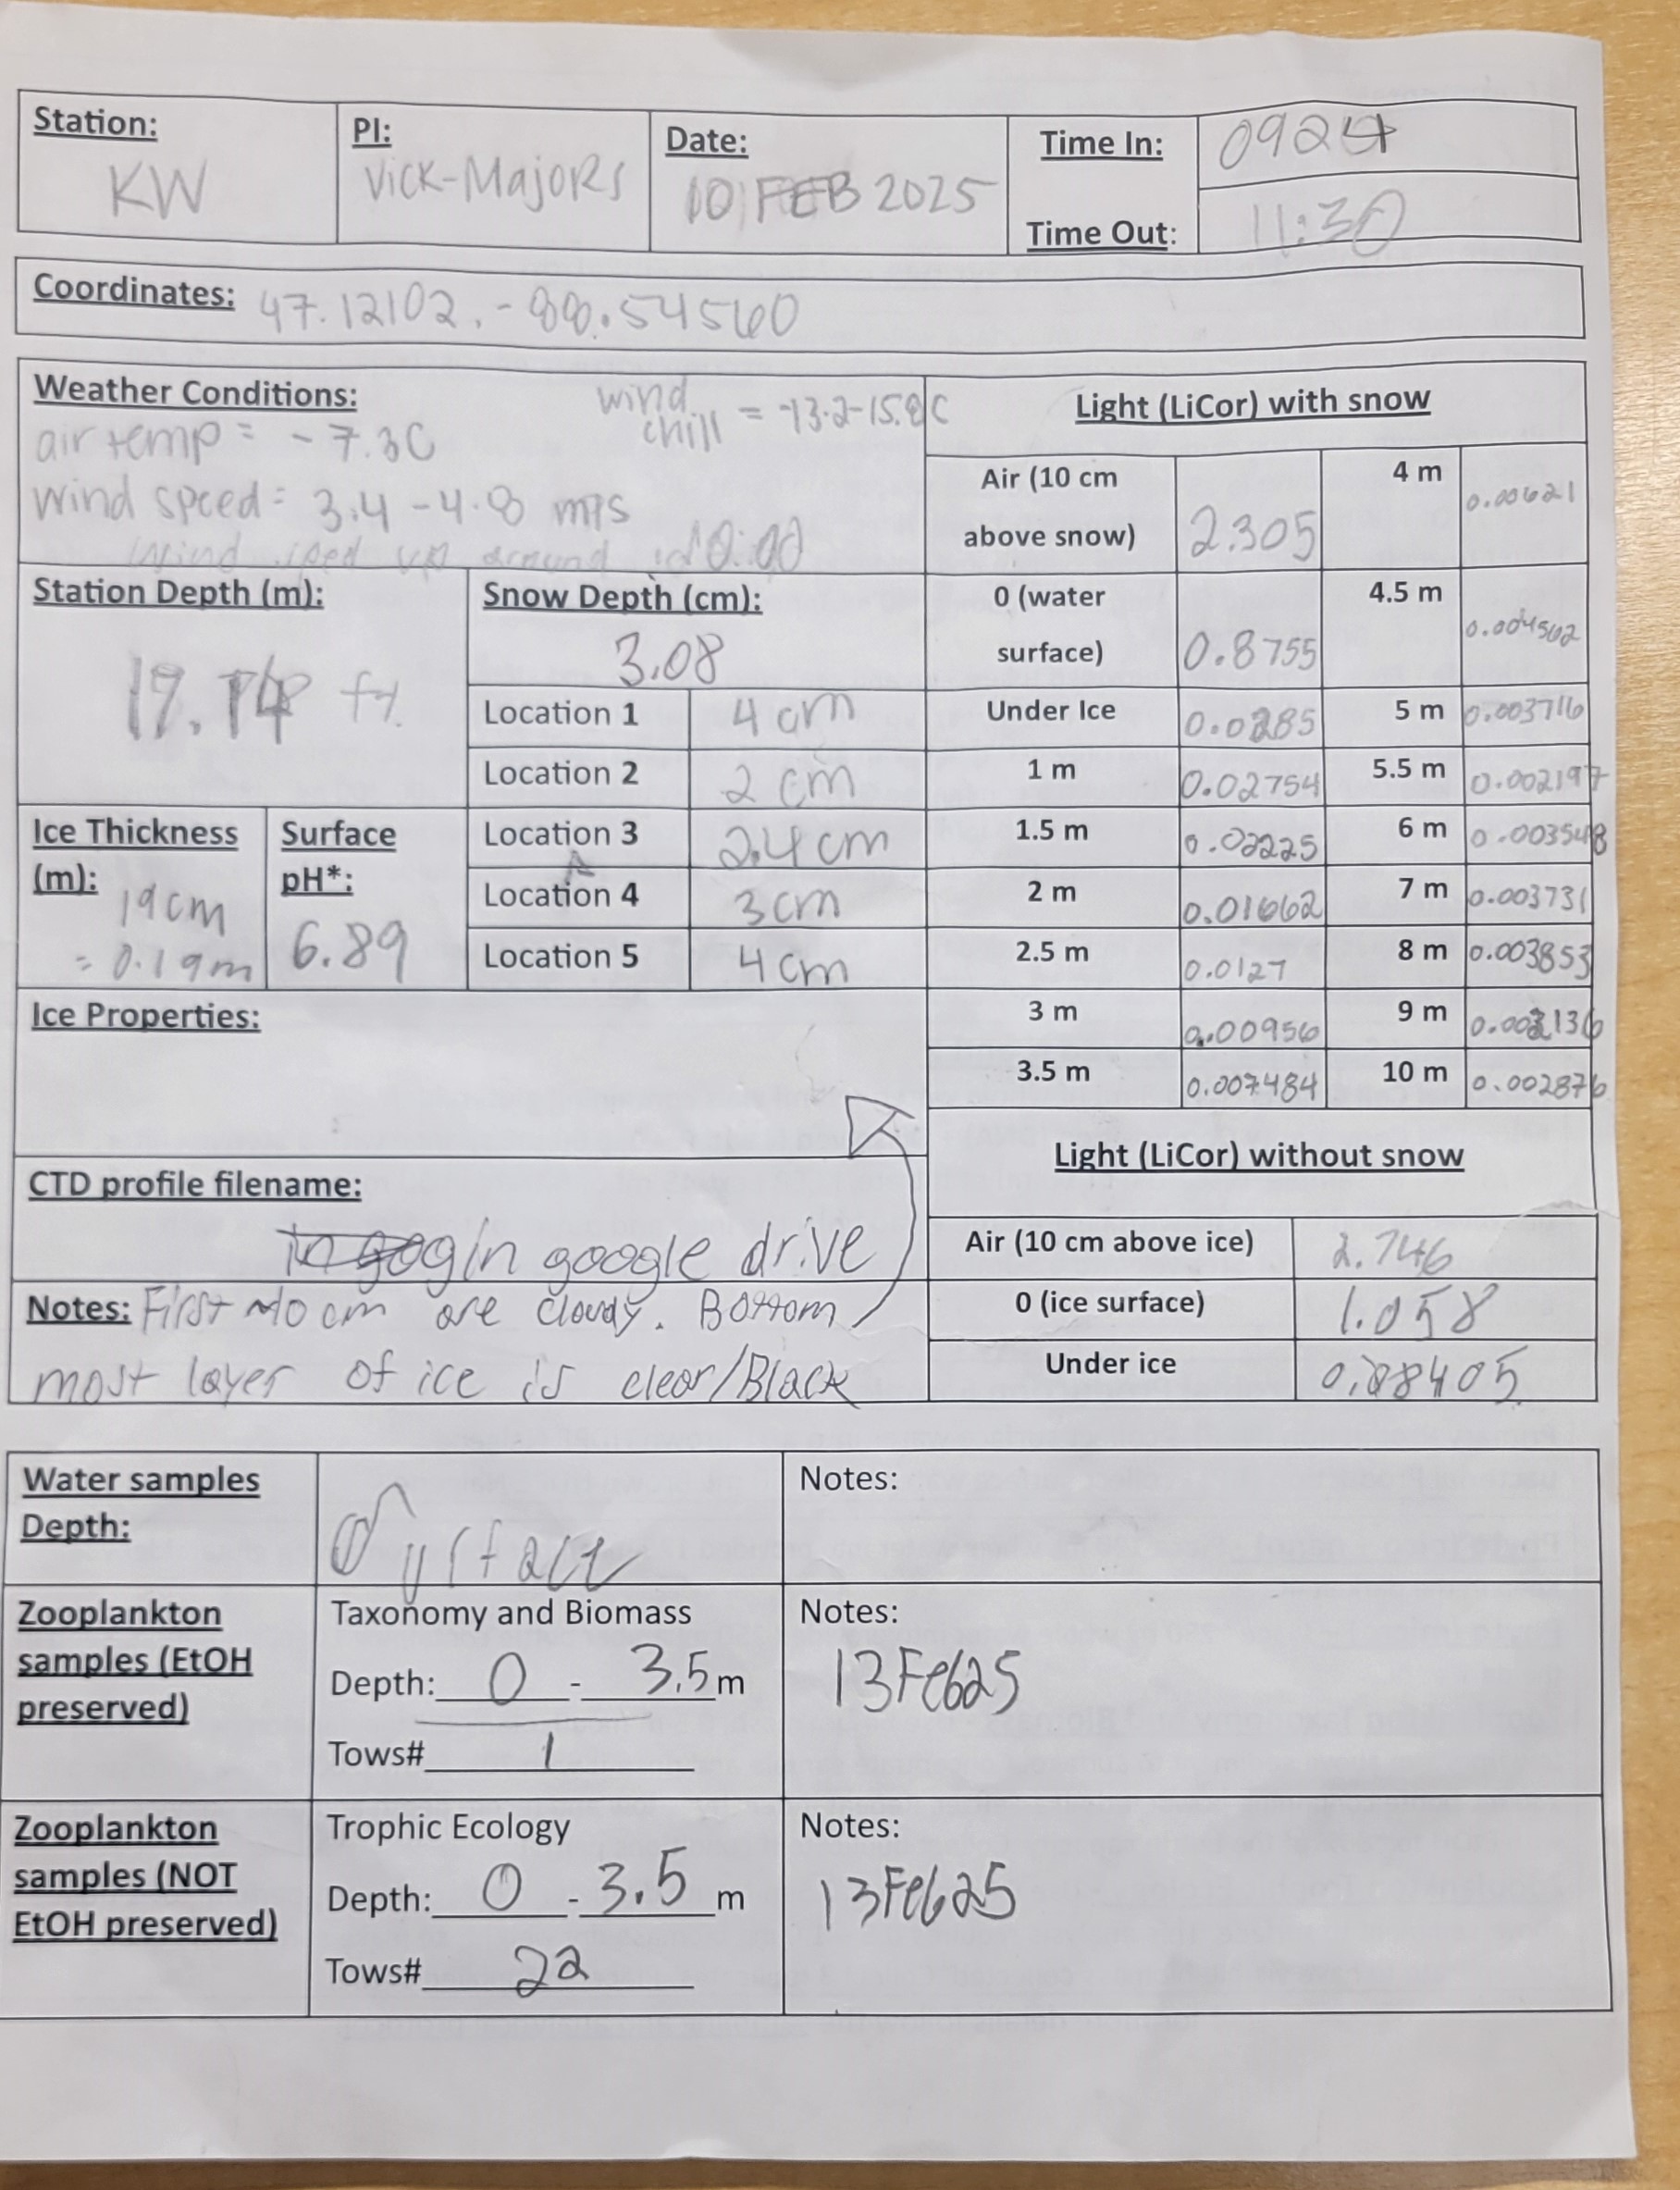 Station: KW
PI: Vick-Majors
Date: 10 FEB 2025
Time In: 0924
Time Out: 11:30
Coordinates: 47.12102, -88.54560
Weather Conditions:
air temp = -7.3C
wind chill = -13.2-15.8C
wind speed = 3.4-4.8 mps
wind up around 10:00
Station Depth (m):
ft.
Snow Depth (cm):
3.08
Location 1 4 cm
Location 2 2 cm
Location 3 2.4 cm
Location 4 3 cm
Location 5 4 cm
Ice Thickness (m):
19 cm
= 0.19m
Surface pH*:
6.89
Ice Properties:
CTD profile filename:
in google drive
Notes: First ~10 cm are cloudy. Bottom
most layer of ice is clear/Black
Light (LiCor) with snow
Air (10 cm above snow) 2.305
0 (water surface) 0.8755
Under Ice 0.0285
1 m 0.02754
1.5 m 0.02225
2 m 0.01662
2.5 m 0.0127
3 m 0.00956
3.5 m 0.007484
4 m 0.00621
4.5 m 0.004562
5 m 0.003716
5.5 m 0.002197
6 m 0.003548
7 m 0.003731
8 m 0.003853
9 m 0.003136
10 m 0.002876
Light (LiCor) without snow
Air (10 cm above ice) 2.746
0 (ice surface) 1.058
Under ice 0.08405
Water samples Depth:
Surface
Notes:
Zooplankton samples (EtOH preserved)
Taxonomy and Biomass
Depth: 0 - 3.5 m
Tows# 1
Notes:
13Feb25
Zooplankton samples (NOT EtOH preserved)
Trophic Ecology
Depth: 0 - 3.5 m
Tows# 22
Notes:
13Feb25